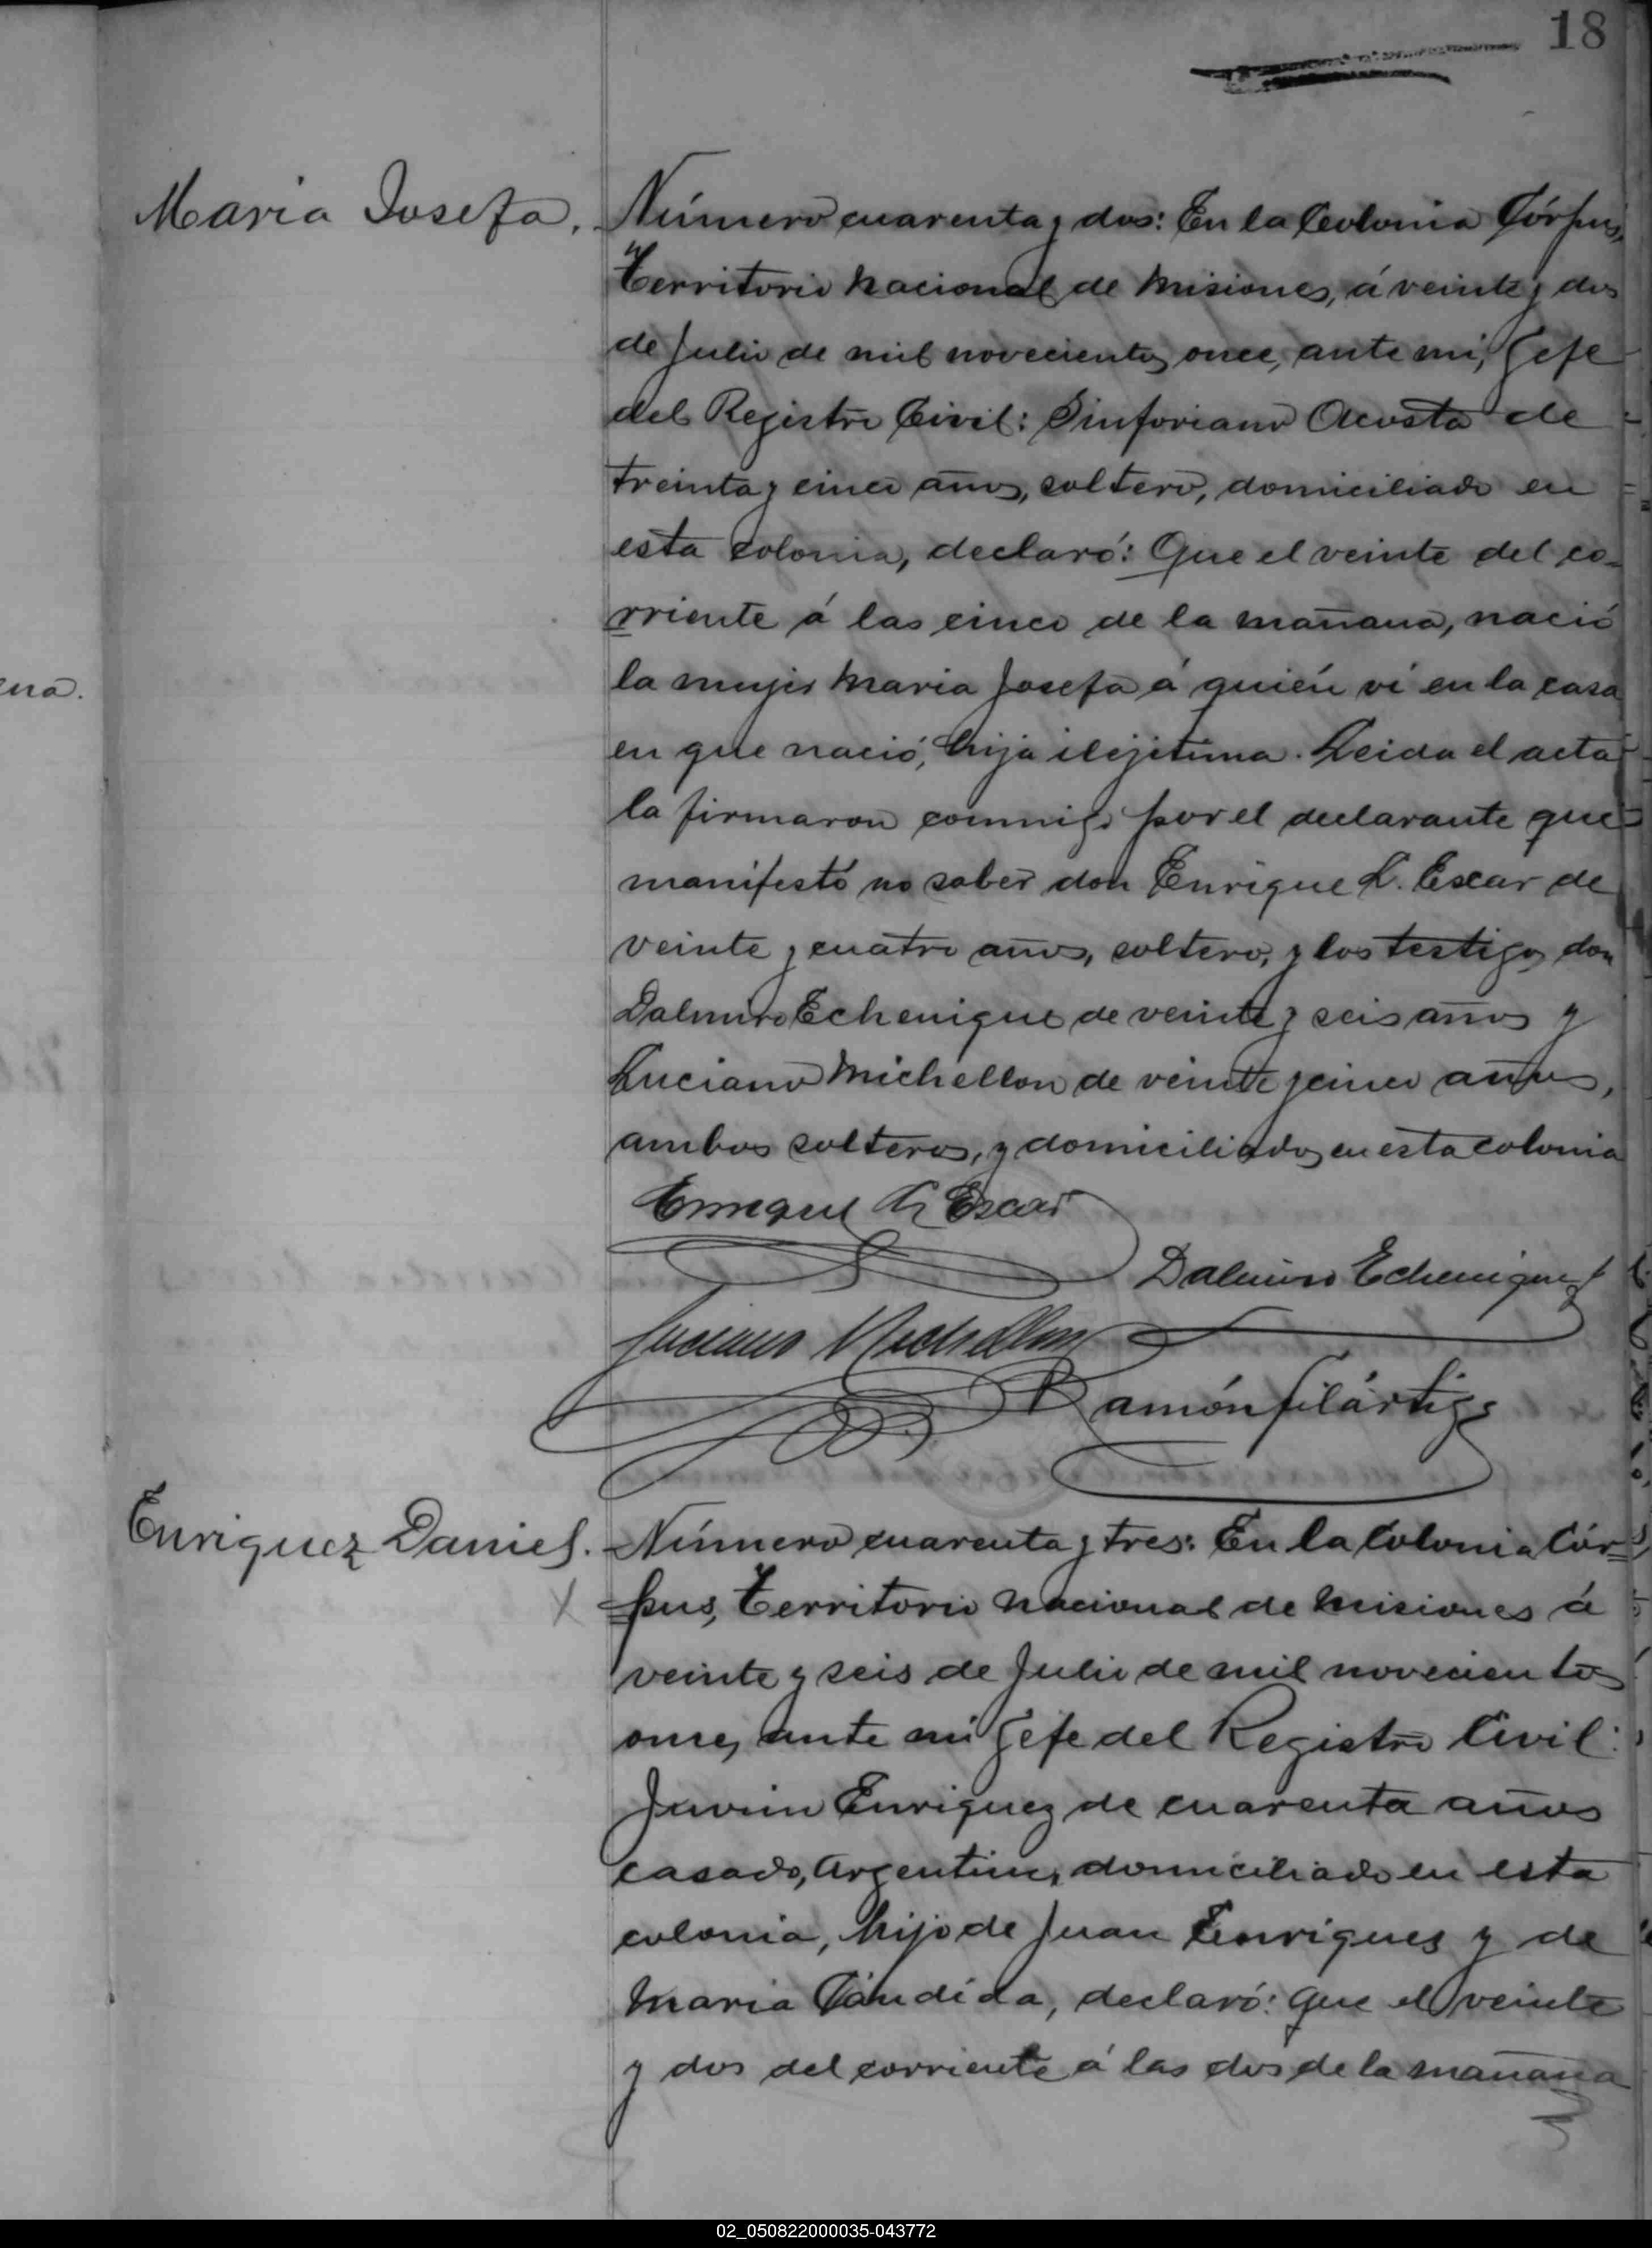 18
Maria Josefa.
Número cuarenta y dos: En la Colonia Córpus,
Territorio Nacional de Misiones, á veinte y dos
de Julio de mil novecientos once, ante mi, Gefe
del Registro Civil: Sinforiano Acosta de
treinta y cinco años, soltero, domiciliado en
esta colonia, declaró: Que el veinte del co-
rriente á las cinco de la mañana, nació
la mujer Maria Josefa á quién ví en la casa
en que nació, hija ilejitima. Leida el acta
la firmaron conmigo por el declarante que
manifestó no saber don Enrique L. Escar de
veinte y cuatro años, soltero, y los testigos don
Dalmiro Echenique de veinte y seis años y
Luciano Michellon de veinte y cinco años,
ambos solteros, y domiciliados en esta colonia
Enrique L. Escar
Dalmiro Echenique
Luciano Michellon
Ramón Filártiga
Enriquez Daniel.
Número cuarenta y tres: En la Colonia Cór-
pus, Territorio Nacional de Misiones á
veinte y seis de Julio de mil novecientos
once, ante mi Gefe del Registro Civil:
Enriquez de cuarenta años
casado, Argentino, domiciliado en esta
colonia, hijo de Juan Enriques y de
Maria Cándida, declaró: Que el veinte
y dos del corriente á las dos de la mañana
ena.
02_050822000035-043772